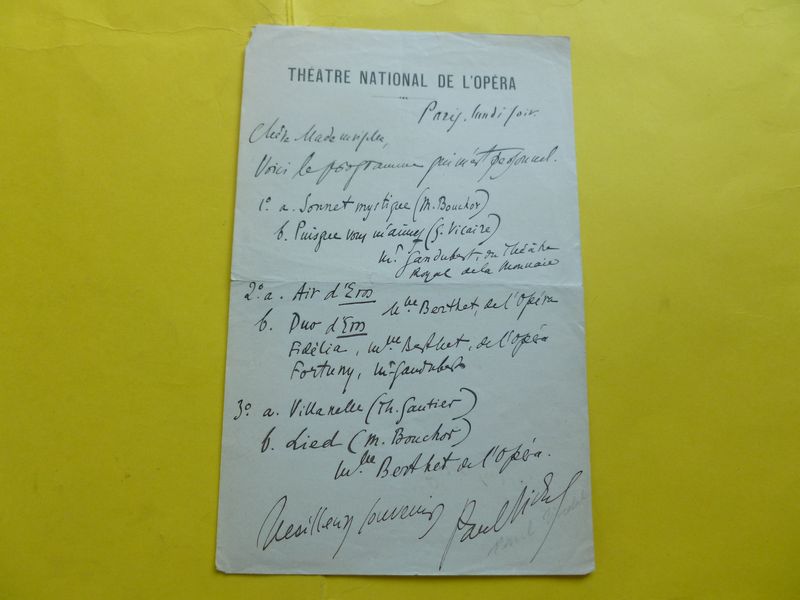 THÉATRE NATIONAL DE L'OPÉRA
Paris. lundi soir.
Chère Mademoiselle,
Voici le programme qui m'est personnel.
1º a. Sonnet mystique (M. Bouchor)
b. Puisque vous m'aimez (G. Vicaire)
Mr Gandubert, du Théâtre
Royal de la Monnaie
2º. a. Air d'Eros
Mlle Berthet, de l'Opéra
b. Duo d'Eros
Fidélia, Mlle Berthet, de l'Opéra
Fortuny, Mr Gandubert
3º a. Villanelle (Th. Gautier)
b. Lied (M. Bouchor)
Mlle Berthet de l'Opéra.
Meilleurs souvenirs
Paul Vidal
Paul Vidal